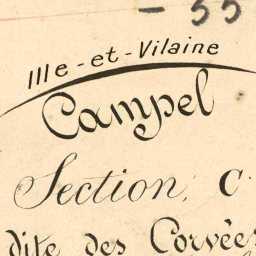 - 55
Ille-et-Vilaine
Campel
Section, C.
dite des Corvées